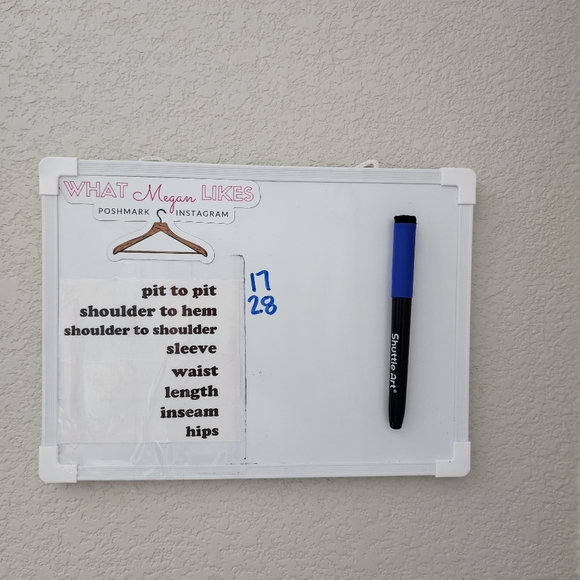 WHAT Megan LIKES
POSHMARK INSTAGRAM
pit to pit 17
shoulder to hem 28
shoulder to shoulder
sleeve
waist
length
inseam
hips
Shuttle Art®